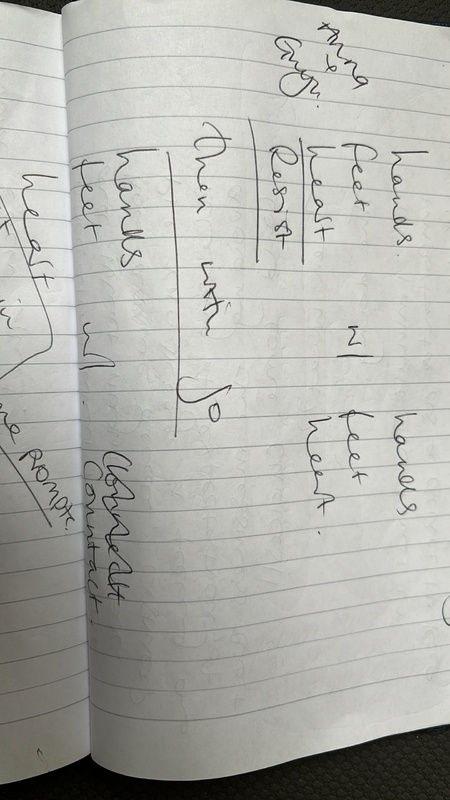 Anna
&
hands. hands
feet w/ feet
heart heart.
Resist
Then with Jo
hands
feet w/. Connect
Contact.
heart
in
promote